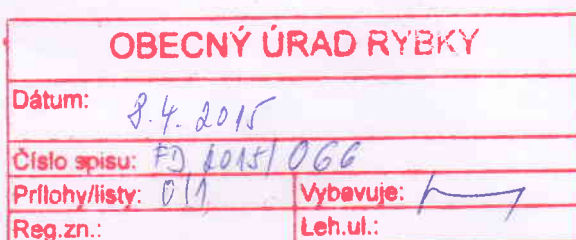 OBECNÝ ÚRAD RYBKY
Dátum: 8.4.2015
Číslo spisu: FD 2015/066
Prílohy/listy: 0/1 Vybavuje:
Reg.zn.: Leh.ul.: